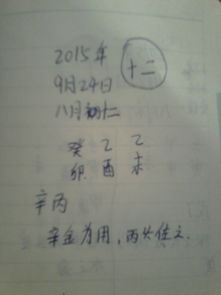 2015年
十二
9月24日
八月初十二
癸 乙 乙
卯 酉 未
辛丙
辛金为用，丙火佐之.